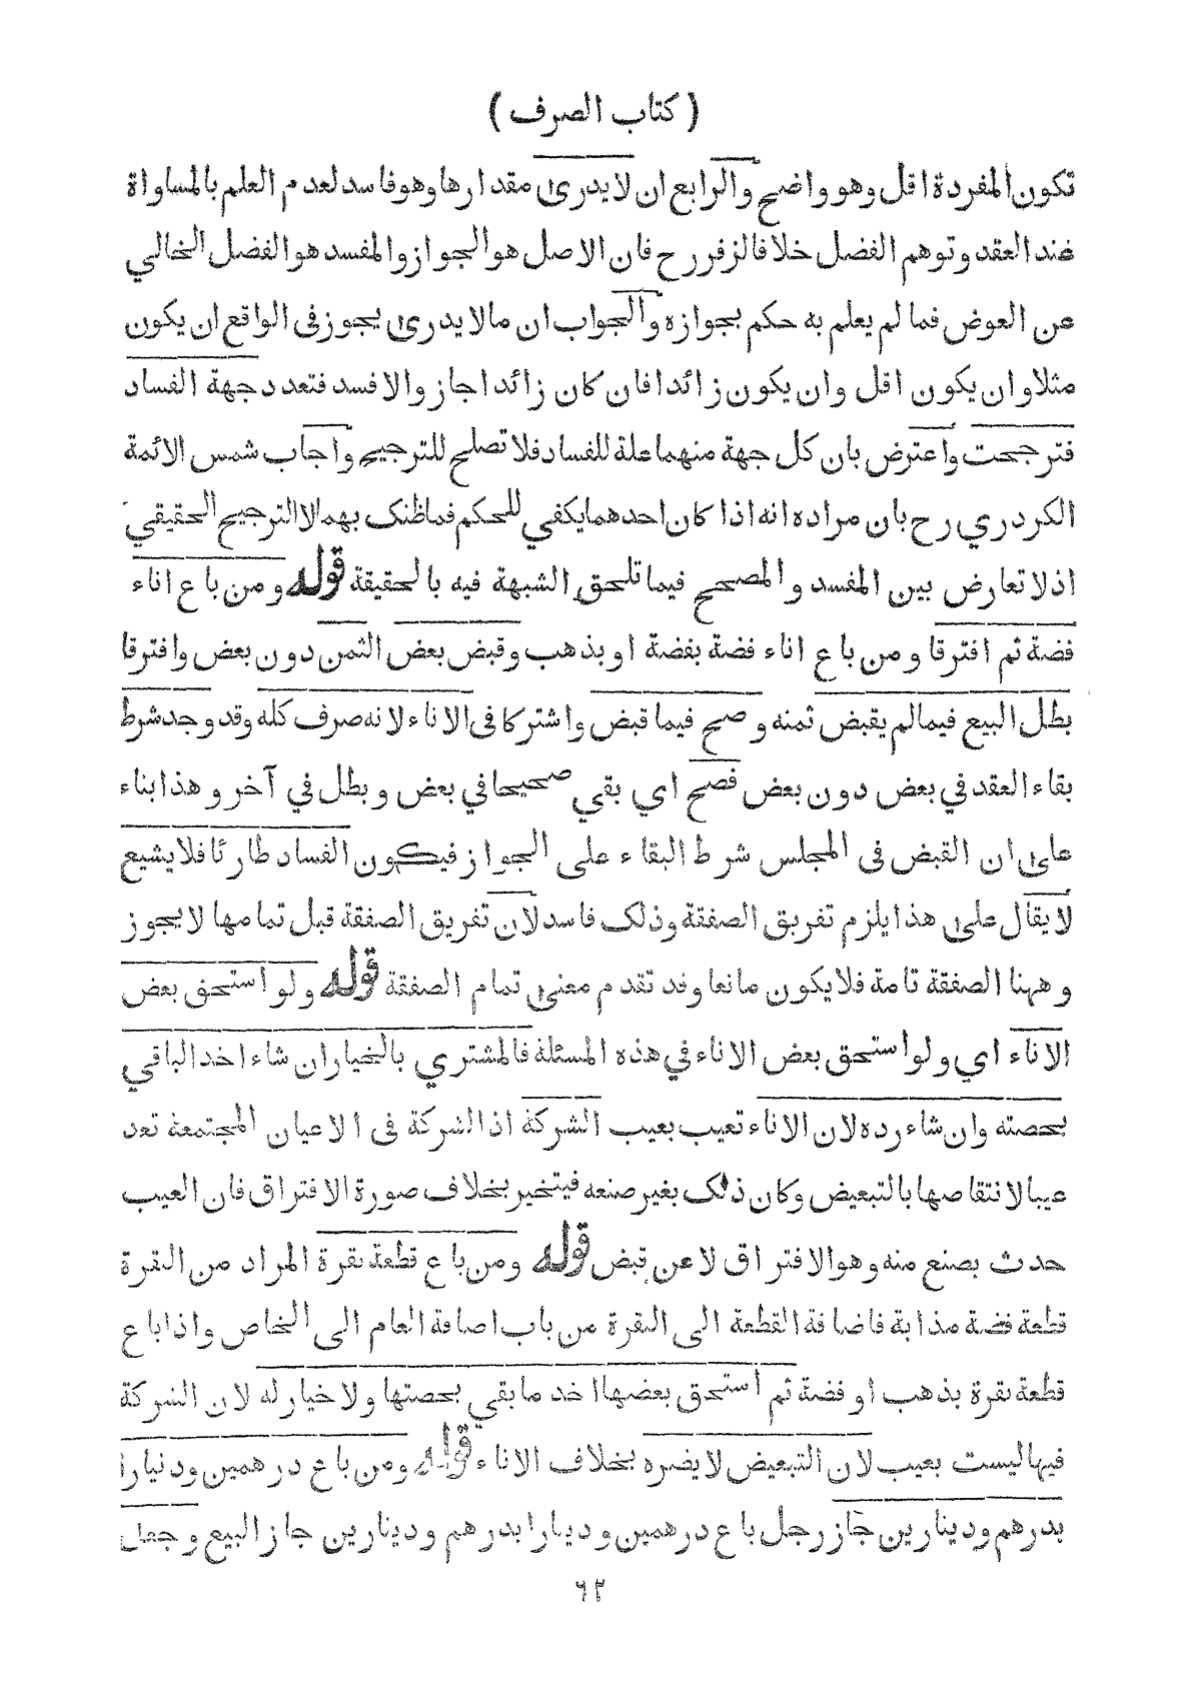 ( كتاب الصرف )
تكون المفردة اقل وهو واضح والرابع ان لا يدرى مقدارها وهو فاسد لعدم العلم بالمساواة
عند العقد وتوهم الفضل خلافا لزفر رح فان الاصل هو الجواز والمفسد هو الفضل الخالي
عن العوض فما لم يعلم به حكم بجوازه والجواب ان مالا يدرى يجوز فى الواقع ان يكون
مثلا وان يكون اقل وان يكون زائدا فان كان زائدا جاز والا فسد فتعدد جهة الفساد
فترجحت واعترض بان كل جهة منهما علة للفساد فلا تصلح للترجيح واجاب شمس الائمة
الكردري رح بان مراده انه اذا كان احدهما يكفي للحكم فما ظنك بهما لا الترجيح الحقيقي
اذ لا تعارض بين المفسد والمصحح فيما تلحق الشبهة فيه بالحقيقة قوله ومن باع اناء
فضة ثم افترقا ومن باع اناء فضة بفضة او بذهب وقبض بعض الثمن دون بعض وافترقا
بطل البيع فيما لم يقبض ثمنه وصح فيما قبض واشتركا فى الاناء لانه صرف كله وقد وجد شرط
بقاء العقد في بعض دون بعض فصح اي بقي صحيحا في بعض وبطل في آخر وهذا بناء
على ان القبض فى المجلس شرط البقاء على الجواز فيكون الفساد طارئا فلا يشيع
لا يقال على هذا يلزم تفريق الصفقة وذلك فاسد لان تفريق الصفقة قبل تمامها لا يجوز
وههنا الصفقة تامة فلا يكون مانعا وقد تقدم معنى تمام الصفقة قوله ولو استحق بعض
الاناء اي ولو استحق بعض الاناء في هذه المسئلة فالمشتري بالخيار ان شاء اخذ الباقي
بحصته وان شاء رده لان الاناء تعيب بعيب الشركة اذ الشركة فى الاعيان المجتمعة تعد
عيبا لانتقاصها بالتبعيض وكان ذلك بغير صنعه فيتخير بخلاف صورة الافتراق فان العيب
حدث بصنع منه وهو الافتراق لا عن قبض قوله ومن باع قطعة نقرة المراد من النقرة
قطعة فضة مذابة فاضافة القطعة الى النقرة من باب اضافة العام الى الخاص واذا باع
قطعة نقرة بذهب او فضة ثم استحق بعضها اخذ ما بقي بحصتها ولا خيار له لان الشركة
فيها ليست بعيب لان التبعيض لا يضره بخلاف الاناء قوله ومن باع درهمين ودنيارا
بدرهم ودينارين جاز رجل باع درهمين ودينارا بدرهم ودينارين جاز البيع وجعل
٦٢